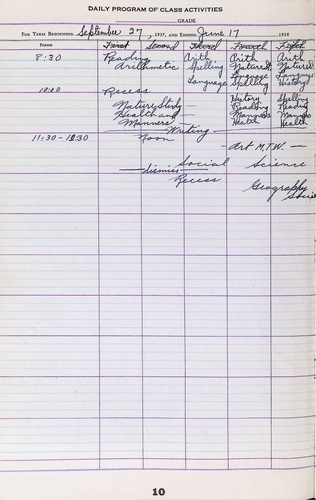 DAILY PROGRAM OF CLASS ACTIVITIES
GRADE
FOR TERM BEGINNING September 27, 1937, AND ENDING June 17 1938
First Second Third Fourth Fifth
8:30 Reading Arith Arith Arith
Arithmetic Spelling Nature St Nature S
Language Language Language
Spelling History
10:10 Recess
History Spelling
Nature Study — Reading Reading
Health and — Manners Manners
Manners Health Health
— Writing —
11:30-12:30 Noon
-Art M.T.W. —
Social Science
— dismiss —
Recess
Geography
Social
10